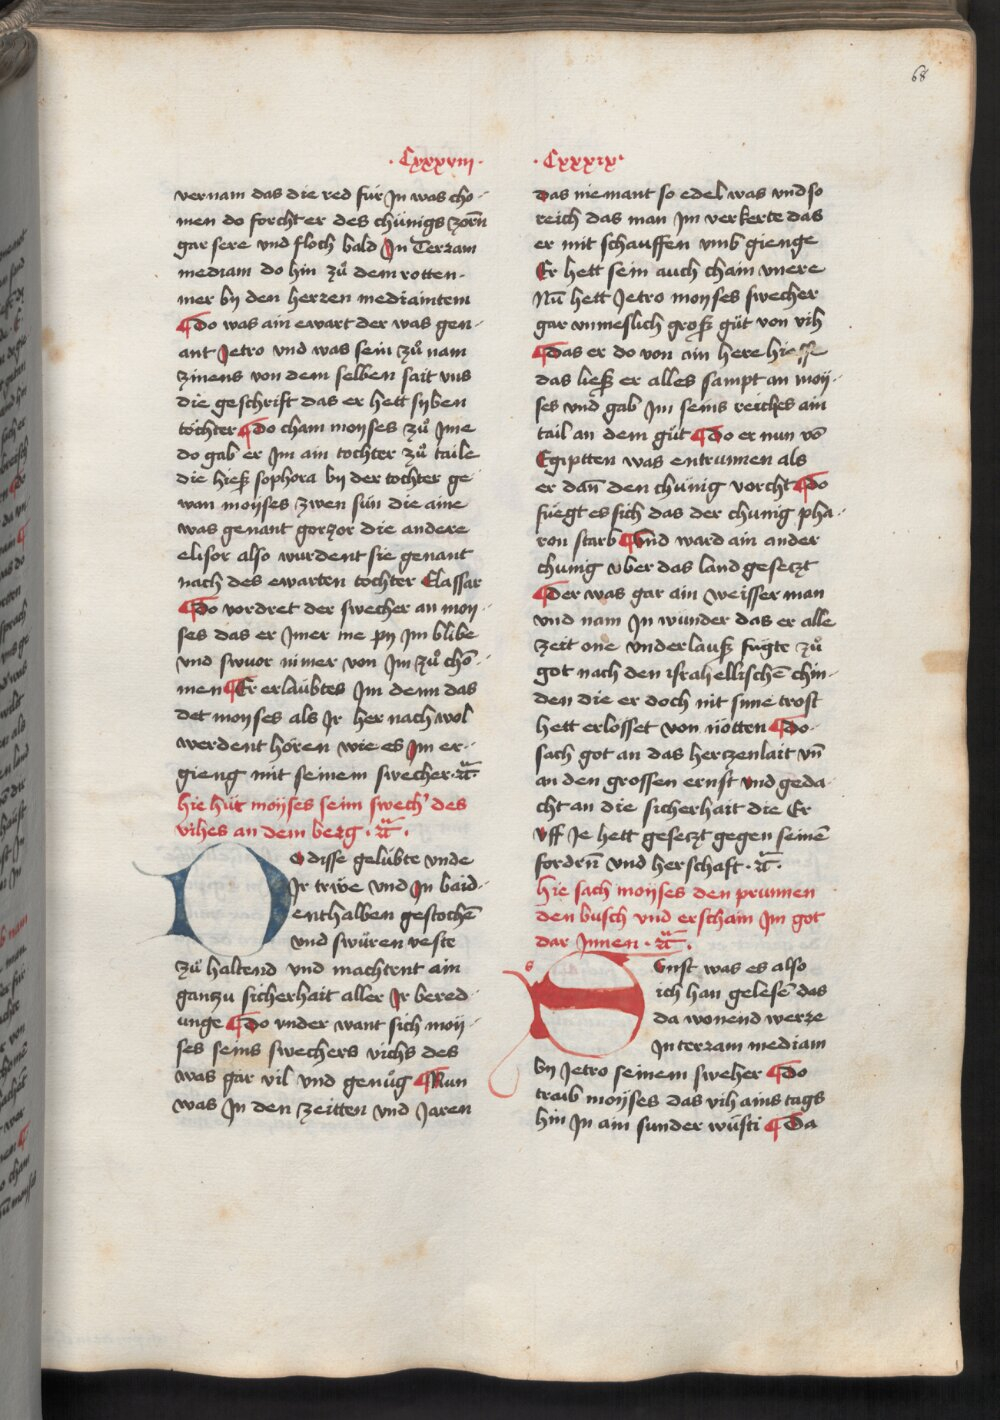 68
· Cxxxviii ·
vernam das die red für Jn was cho-
men do forcht er des chünigs zorn̄
gar sere vnd floch bald Jn Terram
mediam do hin zů dem rotten-
mer bÿ den herren mediaintem
¶ Do was ain ewart der was gen-
ant Jetro vnd was sein zů nam
zinens von dem selben sait vns
die geschrift das er hett syben
töchter ¶ Do cham moyses zů Jme
do gab er Jm ain tochter zů taile
die hieß sophora bÿ der tochter ge
wan moÿses zwen sün die aine
was genant gorzor die andere
elisor also wurdent sie genant
nach des ewarten tochter Elassar
¶ Do vordret der swecher an moy-
ses das er Jmer me pÿ Jm blibe
vnd swuor nimer von Jm zů chō-
men ¶ Er erlaubtes Jm denn das
det moyses als Jr her nach wol
werdent hören wie es Jm er-
gieng mit seinem swecher · ꝛc̄ ·
hie hüt moÿses seim swech' des
vihes an dem berg · ꝛc̄ ·
Do disse gelübte vnde
Jr trẅe vnd Jn baid-
enthalben gestochē
vnd swüren veste
zů haltend vnd machtent ain
ganzu sicherhait aller Jr bered-
unge ¶ Do vnder want sich moÿ-
ses seins swechers vichs des
was gar vil vnd genůg ¶ Nun
was Jn den zeitten vnd Jaren
· Cxxxix ·
das niemant so edel was vnd so
reich das man Jm verkerte das
er mit schauffen vmb gienge
Er hett sein auch chain vnere
Nū hett Jetro moyses swecher
gar vnmeslich groß güt von vih
¶ Das er do von ain here hiesse
das ließ er alles sampt an moÿ-
ses vnd gab Jm seins reiches ain
tail an dem güt ¶ Do er nun vō
Egiptten was entrunnen als
er dan̄ den chünig vorcht ¶ Do
füegt es sich das der chunig pha-
ron starb ¶ Vnd ward ain ander
chunig vber das land gesetzt
¶ Der was gar ain weisser man
vnd nam Jn wunder das er alle
zeit one vnderlauß fügte zů
got nach den israhellischē chin-
den die er doch nit sinne trost
hett erlosset von nötten ¶ Do
sach got an das hertzenlait vn̄
an den grossen ernst vnd geda-
cht an die sicherhait die Er
vff Je hett gesetzt gegen seinē
fordrn̄ vnd herschaft · ꝛc̄ ·
hie sach moÿses den prunnen
den busch vnd erschain Jm got
dar Jnnen · ꝛc̄ ·
s
Sunst was es also
ich han gelesē das
da wonend werre
Jn terram mediam
bÿ Jetro seinem sweher ¶ Do
traib moÿses das vih ains tags
hin Jn ain sunder wüsti ¶ Da